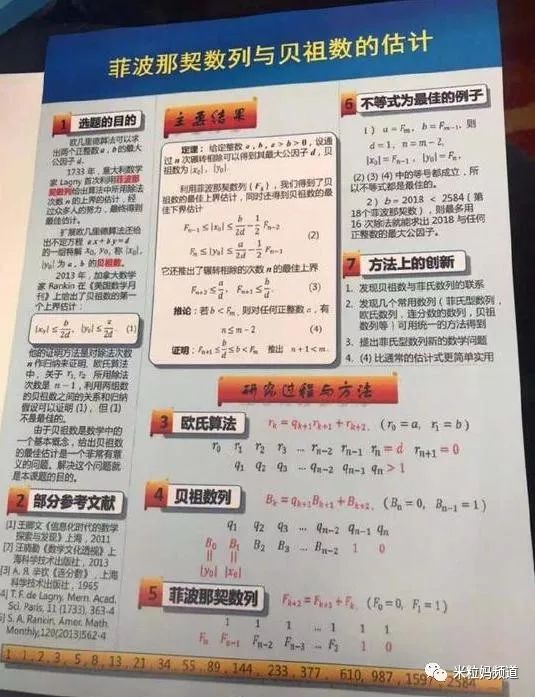 菲波那契数列与贝祖数的估计
1 选题的目的
欧几里德算法可以求
出两个正整数 a, b 的最大
公因子 d.
1733 年，意大利数学
家 Lagny 首次利用菲波那
契数列给出算法中所用除法
次数 n 的上界的估计，经
过众多人的努力，最终得到
最佳估计。
扩展欧几里德算法还给
出不定方程 ax + by = d
的一组特解 x₀, y₀, 称 |x₀|,
|y₀| 为 a, b 的贝祖数。
2013 年，加拿大数学
家 Rankin 在《美国数学月
刊》上给出了贝祖数的第一
个上界估计：
|x₀| ≤ b/2d, |y₀| ≤ a/2d. (1)
他的证明方法是对除法次数
n 作归纳来证明. 欧氏算法
中，关于 r₁, r₂ 所用除法
次数是 n − 1，利用两组数
的贝祖数之间的关系和归纳
假设可以证明 (1)，但 (1)
不是最佳的。
由于贝祖数是数学中的
一个基本概念，给出贝祖数
的最佳估计是一个非常有意
义的问题。解决这个问题就
是本课题的目的。
2 部分参考文献
探索与发现》上海，2011
海科学技术出版社，2013
科学技术出版社，1965
4] T. F. de Lagny. Mem. Acad.
Sci. Paris, 11 (1733), 363-4
5] S. A. Rankin, Amer. Math.
Monthly,120(2013)562-4
主要结果
定理：给定整数 a, b, a > b > 0，设通
过 n 次辗转相除可以得到其最大公因子 d，贝
祖数为 |x₀|, |y₀|.
利用菲波那契数列 {Fₖ}，我们得到了贝
祖数的最佳上界估计，同时还得到贝祖数的最
佳下界估计
Fₙ₋₁ ≤ |x₀| ≤ b/2d − 1/2 Fₙ₋₂
(2)
Fₙ ≤ |y₀| ≤ a/2d − 1/2 Fₙ₋₁
它还推出了辗转相除的次数 n 的最佳上界
Fₙ₊₂ ≤ a/d, Fₙ₊₁ ≤ b/d. (3)
推论：若 b < Fₘ，则对任何正整数 a，有
n ≤ m − 2 (4)
证明：Fₙ₊₁ ≤ b/d ≤ b < Fₘ 推出 n + 1 < m.
6 不等式为最佳的例子
1) a = Fₘ, b = Fₘ₋₁, 则
d = 1, n = m − 2,
|x₀| = Fₙ₋₁, |y₀| = Fₙ.
(2) (3) (4) 中的等号都成立，所
以不等式都是最佳的。
2) b = 2018 < 2584 (第
18个菲波那契数)，则最多用
16 次除法就能求出 2018 与任何
正整数的最大公因子。
7 方法上的创新
1. 发现贝祖数与菲氏数列的联系
2. 发现几个常用数列（菲氏型数列，
欧氏数列，连分数的数列，贝祖
数列等）可用统一的方法得到
3. 提出菲氏型数列新的数学问题
4. (4) 比通常的估计式更简单实用
研究过程与方法
3 欧氏算法 rₖ = qₖ₊₁rₖ₊₁ + rₖ₊₂, (r₀ = a, r₁ = b)
r₀ r₁ r₂ r₃ ... rₙ₋₂ rₙ₋₁ rₙ = d rₙ₊₁ = 0
q₁ q₂ q₃ ... qₙ₋₂ qₙ₋₁ qₙ > 1
4 贝祖数列 Bₖ = qₖ₊₁Bₖ₊₁ + Bₖ₊₂, (Bₙ = 0, Bₙ₋₁ = 1)
q₁ q₂ q₃ ... qₙ₋₂ qₙ₋₁ qₙ
B₀ B₁ B₂ B₃ ... Bₙ₋₂ 1 0
|| ||
|y₀| |x₀|
5 菲波那契数列 Fₖ₊₂ = Fₖ₊₁ + Fₖ, (F₀ = 0, F₁ = 1)
1 1 1 ... 1 1 1
Fₙ Fₙ₋₁ Fₙ₋₂ Fₙ₋₃ ... F₂ 1 0
1, 1, 2, 3, 5, 8, 13, 21, 34, 55, 89, 144, 233, 377, 610, 987, 1597, 2584
米粒妈频道